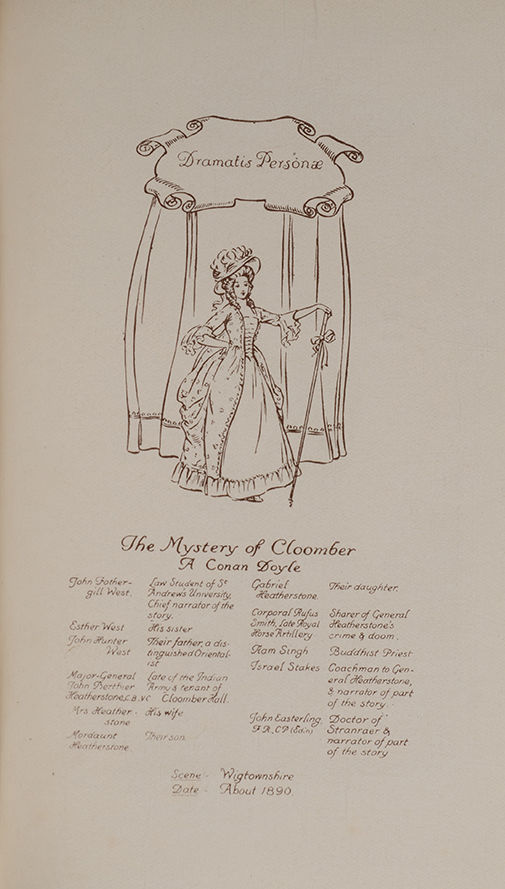 Dramatis Personæ
The Mystery of Cloomber
A Conan Doyle
John Fother-
gill West.
Law Student of St
Andrew's University.
Chief narrator of the
story.
Esther West
His sister
John Hunter
West
Their father, a dis-
tinguished Oriental-
ist
Major-General
John Berthier
Heatherstone, C.B. V.C
Late of the Indian
Army & tenant of
Cloomber Hall.
Mrs Heather-
stone
His wife
Mordaunt
Heatherstone.
Their son.
Gabriel
Heatherstone.
Their daughter.
Corporal Rufus
Smith, late Royal
Horse Artillery
Sharer of General
Heatherstone's
crime & doom.
Ram Singh
Buddhist Priest
Israel Stakes
Coachman to Gen-
eral Heatherstone,
& narrator of part
of the story.
John Easterling,
F.R.C.P (Edin)
Doctor of
Stranraer &
narrator of part
of the story
Scene - Wigtownshire
Date - About 1890.